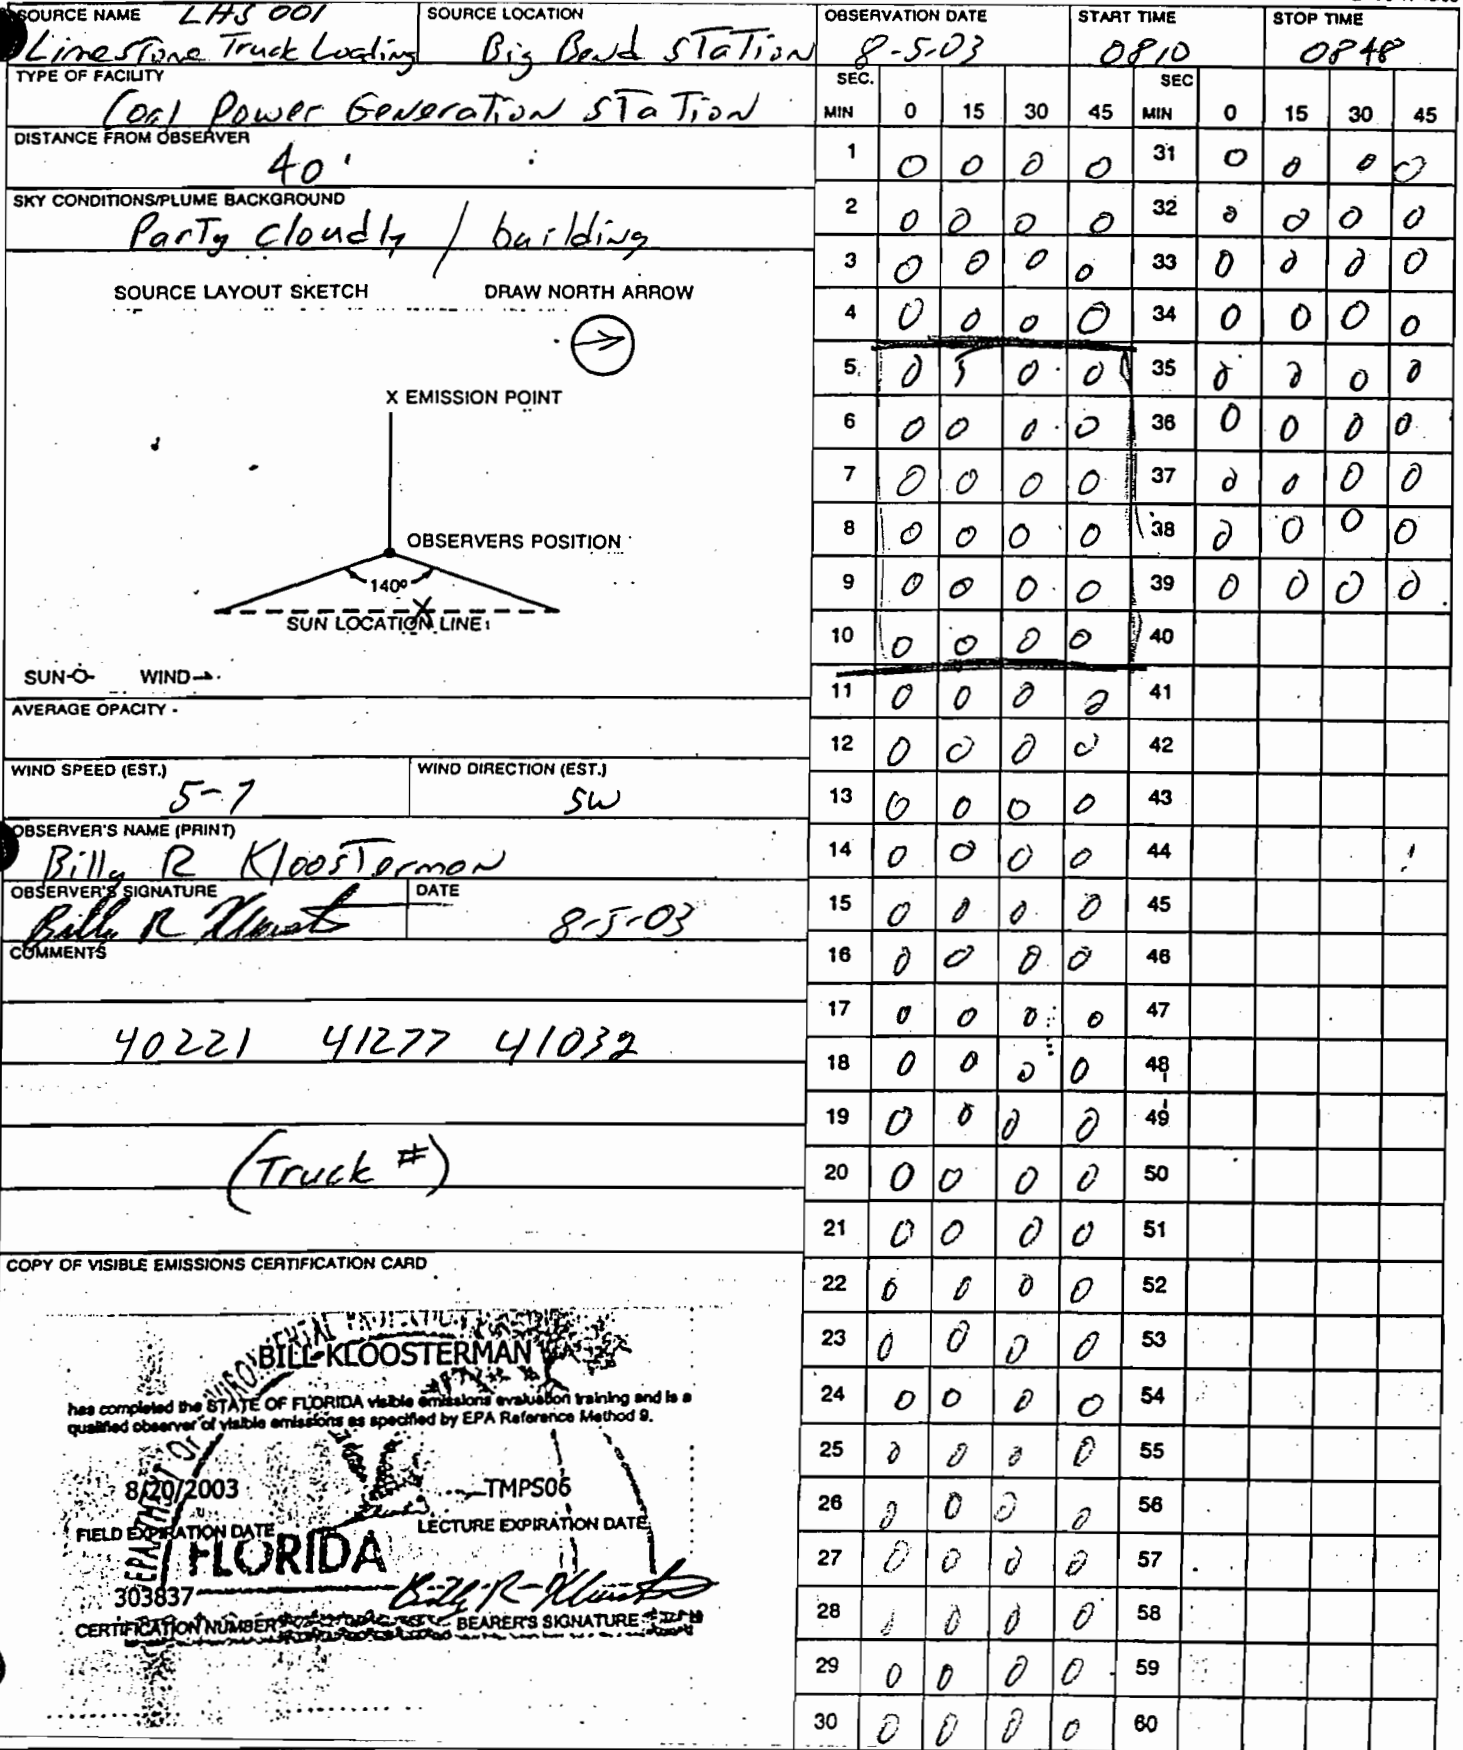 SOURCE NAME LHS 001
Limestone Truck Loading
SOURCE LOCATION
Big Bend STaTion
OBSERVATION DATE
8-5-03
START TIME
0810
STOP TIME
0848
TYPE OF FACILITY
Coal Power GeneraTion STaTion
DISTANCE FROM OBSERVER
40'
SKY CONDITIONS/PLUME BACKGROUND
ParTy cloudly / building
SOURCE LAYOUT SKETCH DRAW NORTH ARROW
X EMISSION POINT
OBSERVERS POSITION
140º
X
SUN LOCATION LINE
SUN WIND
AVERAGE OPACITY
WIND SPEED (EST.)
5-7
WIND DIRECTION (EST.)
SW
OBSERVER'S NAME (PRINT)
Billy R KloosTerman
OBSERVER'S SIGNATURE
Billy R
DATE
8-5-03
COMMENTS
40221 41277 41032
(Truck #)
COPY OF VISIBLE EMISSIONS CERTIFICATION CARD
BILL KLOOSTERMAN
has completed the STATE OF FLORIDA visible emissions evaluation training and is a
qualified observer of visible emissions as specified by EPA Reference Method 9.
8/20/2003 TMPS06
FIELD EXPIRATION DATE LECTURE EXPIRATION DATE
FLORIDA
303837 Billy R
CERTIFICATION NUMBER BEARER'S SIGNATURE
SEC. SEC
MIN 0 15 30 45 MIN 0 15 30 45
1 0 0 0 0 31 0 0 0 0
2 0 0 0 0 32 0 0 0 0
3 0 0 0 0 33 0 0 0 0
4 0 0 0 0 34 0 0 0 0
5 0 5 0 0 35 0 0 0 0
6 0 0 0 0 36 0 0 0 0
7 0 0 0 0 37 0 0 0 0
8 0 0 0 0 38 0 0 0 0
9 0 0 0 0 39 0 0 0 0
10 0 0 0 0 40
11 0 0 0 0 41
12 0 0 0 0 42
13 0 0 0 0 43
14 0 0 0 0 44
15 0 0 0 0 45
16 0 0 0 0 46
17 0 0 0 0 47
18 0 0 0 0 48
19 0 0 0 0 49
20 0 0 0 0 50
21 0 0 0 0 51
22 0 0 0 0 52
23 0 0 0 0 53
24 0 0 0 0 54
25 0 0 0 0 55
26 0 0 0 0 56
27 0 0 0 0 57
28 0 0 0 0 58
29 0 0 0 0 59
30 0 0 0 0 60